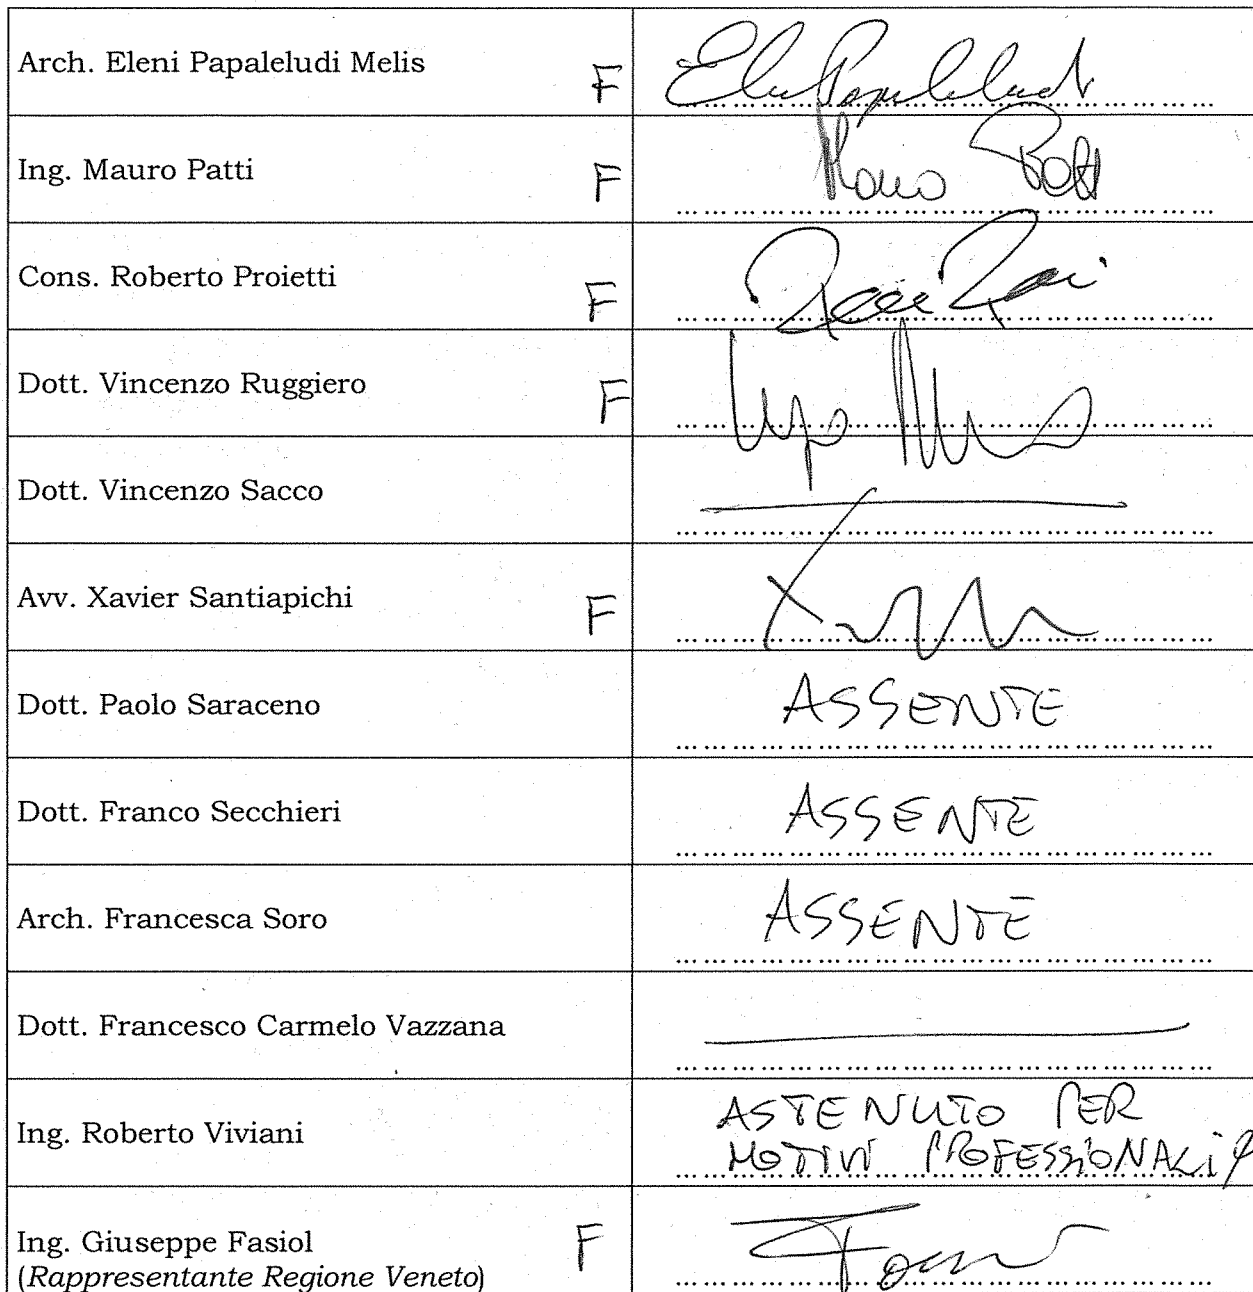 Arch. Eleni Papaleludi Melis F Papaleludi
Ing. Mauro Patti F Mauro Patti
Cons. Roberto Proietti F
Dott. Vincenzo Ruggiero F
Dott. Vincenzo Sacco
Avv. Xavier Santiapichi F
Dott. Paolo Saraceno ASSENTE
Dott. Franco Secchieri ASSENTE
Arch. Francesca Soro ASSENTE
Dott. Francesco Carmelo Vazzana
Ing. Roberto Viviani ASTENUTO PER
MOTIVI PROFESSIONALI
Ing. Giuseppe Fasiol F
(Rappresentante Regione Veneto)